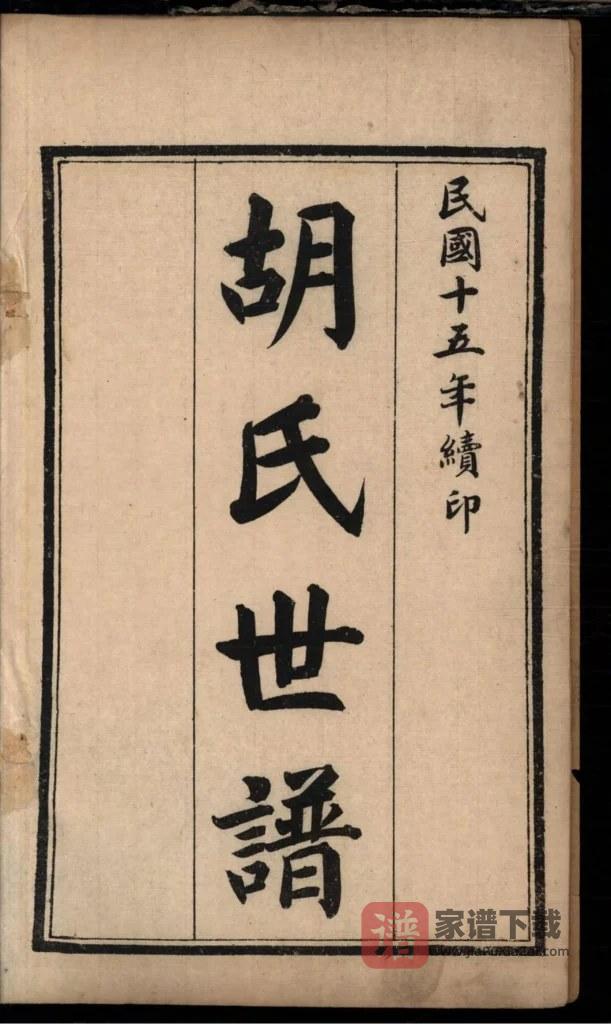 民國十五年續印
胡氏世譜
谱
家谱下载